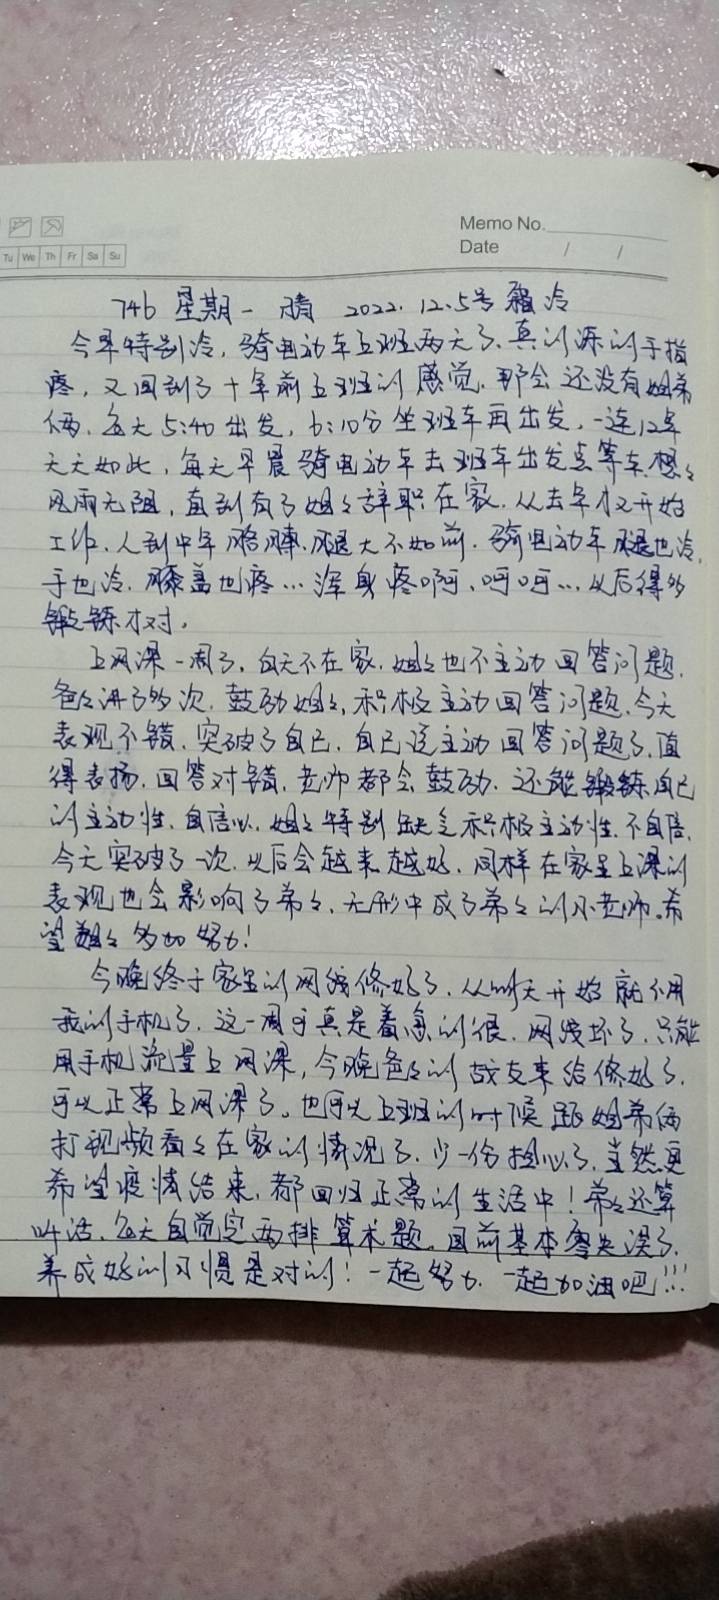 Memo No.
Date / /
Tu We Th Fr Sa Su
746 星期一 晴 2022.12.5号 冷
今早特别冷，骑电动车上班两天了，真的冻的手指
疼，又回到了十年前上班的感觉，那会还没有姐弟
俩，每天5:40出发，6:10分坐班车再出发，一连12年
天天如此，每天早晨骑电动车去班车出发点等车，想想
风雨无阻，直到有了姐姐辞职在家，从去年才又开始
工作，人到中年胳膊、腿大不如前，骑电动车腿也冷，
手也冷，膝盖也疼…浑身疼啊，呵呵…以后得多
锻练才对。
上网课一周了，白天不在家，姐姐也不主动回答问题，
爸爸讲了多次，鼓励姐姐，积极主动回答问题，今天
表现不错，突破了自己，自己说主动回答问题了，值
得表扬，回答对错，老师都会鼓励，还能锻练自己
的主动性，自信心，姐姐特别缺乏积极主动性，不自信，
今天突破了一次，以后会越来越好，同样在家里上课的
表现也会影响了弟弟，无形中成了弟弟的小老师。希
望姐姐多加努力！
今晚终于家里的网线修好了，从明天开始就不用
我的手机了，这一周可真是着急的很，网线坏了，只能
用手机流量上网课，今晚爸爸的战友来给修好了，
可以正常上网课了。也可以上班的时候跟姐弟俩
打视频看看在家的情况了，少一份担心了，当然更
希望疫情结束，都回归正常的生活中！弟弟还算
听话，每天自觉完两排算术题，目前基本零失误了，
养成好的习惯是对的！一起努力，一起加油吧!!!